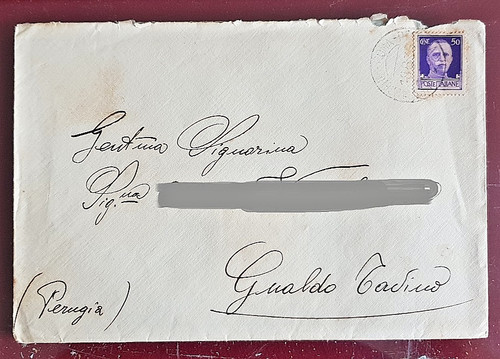 CENT. 50
POSTE ITALIANE
Gent.ma Signorina
Sig.na
Gualdo Tadino
(Perugia)